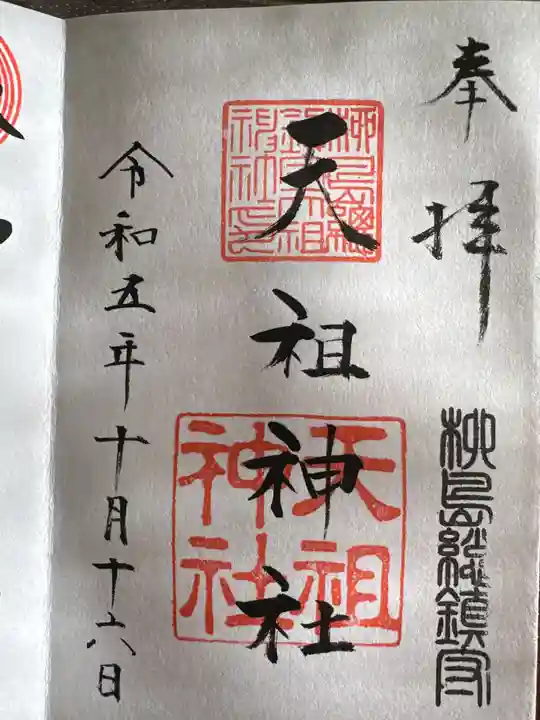 奉拝
柳島総鎮守
天祖神社
天祖
神社
令和五年十月十六日